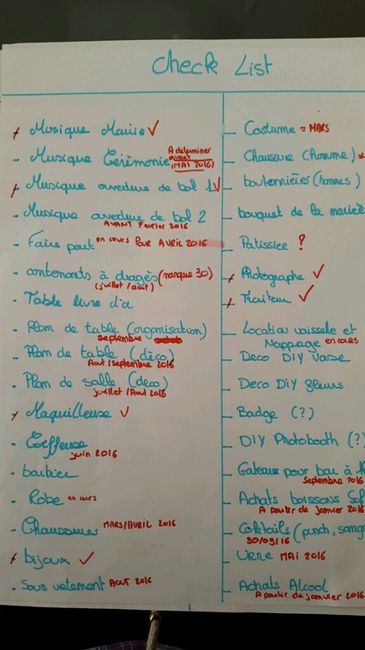 Check List
Musique Mairie ✓
- Musique Cérémonie A déterminer avant MAI 2016
Musique ouverture de bal 1 ✓
- Musique ouverture de bal 2
AVANT Février 2016
- Faire part en cours Pour AVRIL 2016
- contenants à dragés (manque 30)
(juillet / août)
- Table livre d'or
- Plan de table (organisation)
Septembre
- Plan de table (déco)
Aout / Septembre 2016
- Plan de salle (deco)
juillet / Aout 2016
Maquilleuse ✓
- Coiffeuse
juin 2016
- barbier
- Robe en cours
- Chaussures MARS/AVRIL 2016
bijoux ✓
- Sous vetement AOUT 2016
- Costume = MARS
- Chaussure (homme)
- boutonnière (hommes)
- bouquet de la mariée
- Patissier ?
Photographe ✓
Traiteur ✓
- Location vaisselle et
Nappage en cours
- Deco DIY Vase
- Deco DIY fleurs
- Badge (?)
- DIY Photobooth (?)
- Gateaux pour bar à
Septembre 2016
- Achats boissons Sof
A partir de janvier 2016
- Coktails (punch, sang
30/09/16
- Urne MAI 2016
- Achats Alcool
A partir de janvier 2016